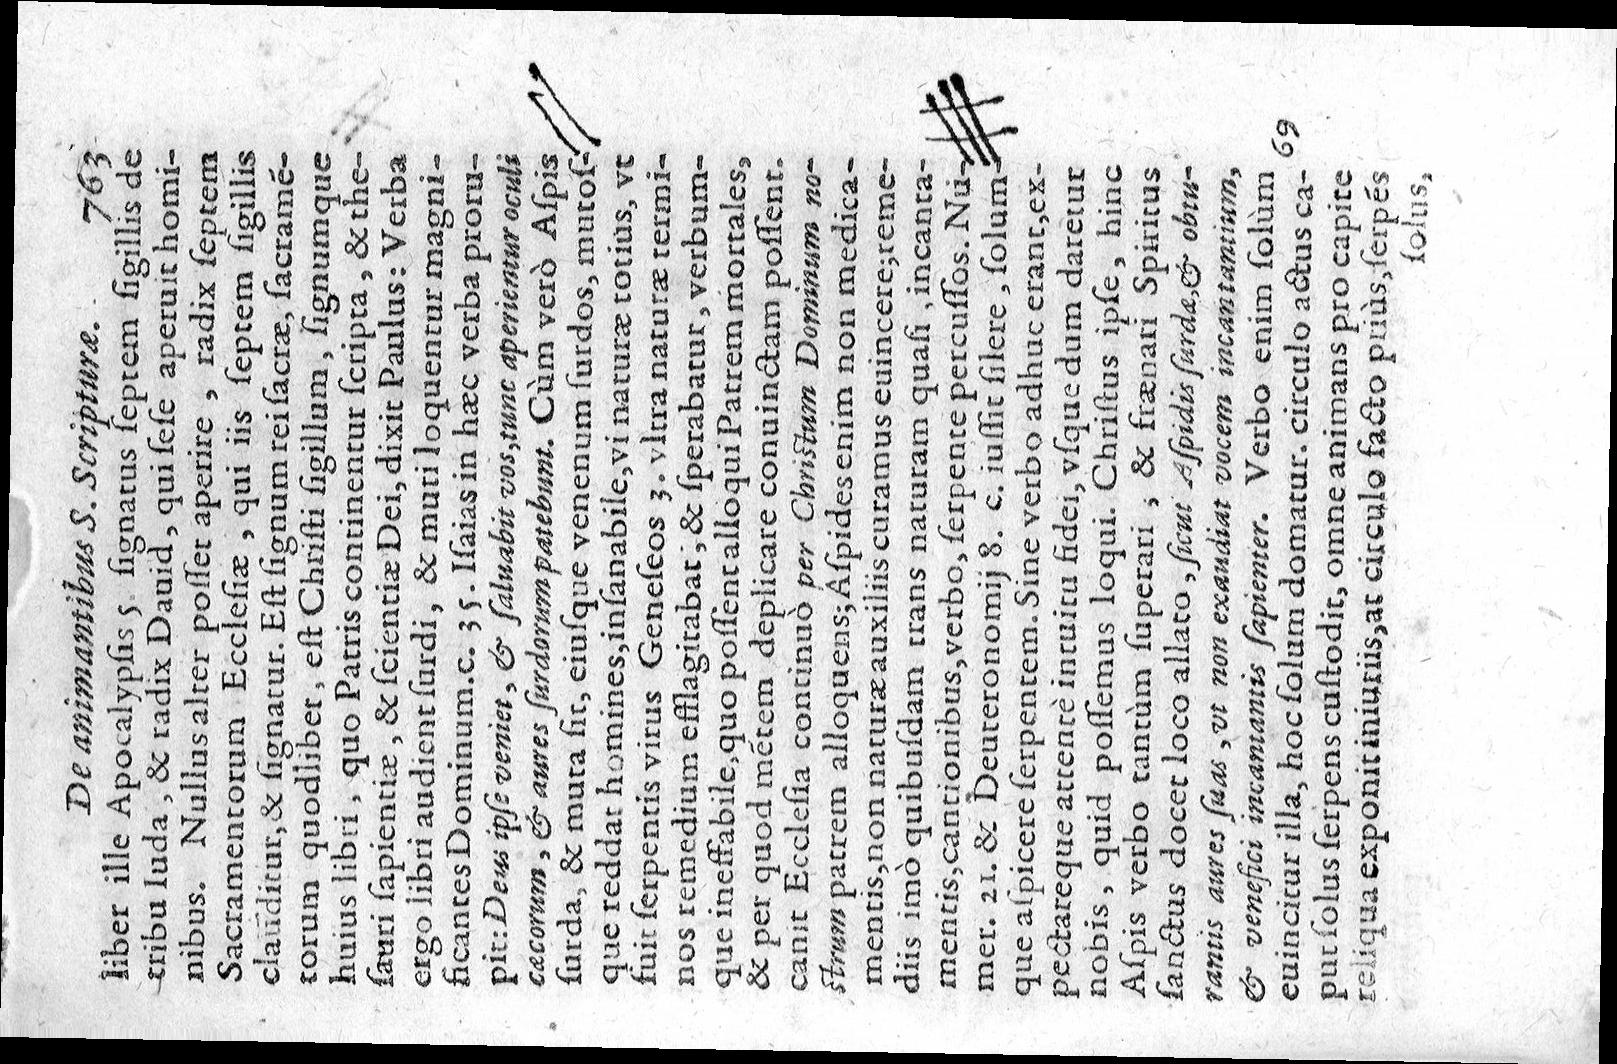 De animantibus S. Scripturæ. 763
liber ille Apocalypsis 5. ſignatus ſeptem ſigillis de
tribu Iuda, & radix Dauid, qui ſeſe aperuit homi-
nibus. Nullus alter poſſet aperire, radix ſeptem
Sacramentorum Eccleſiæ, qui iis ſeptem ſigillis
clauditur, & ſignatur. Eſt ſignum rei ſacræ, ſacramé-
torum quodliber, eſt Chriſti ſigillum, ſignumque
huius libri, quo Patris continentur ſcripta, & the-
ſauri ſapientiæ, & ſcientiæ Dei, dixit Paulus: Verba
ergo libri audient ſurdi, & muti loquentur magni-
ficantes Dominum. c. 35. Iſaias in hæc verba proru-
pit: Deus ipſe veniet, & ſaluabit vos, tunc aperientur oculi
cæcorum, & aures ſurdorum patebunt. Cùm verò Aſpis
ſurda, & muta ſit, eiuſque venenum ſurdos, mutoſ-
que reddat homines, inſanabile, vi naturæ totius, vt
fuit ſerpentis virus Geneſeos 3. vltra naturæ termi-
nos remedium efflagitabat, & ſperabatur, verbum-
que ineffabile, quo poſſent alloqui Patrem mortales,
& per quod métem deplicare conuinctam poſſent.
canit Eccleſia continuò per Chriſtum Dominum no-
ſtrum patrem alloquens; Aſpides enim non medica-
mentis, non naturæ auxiliis curamus euincere; reme-
diis imò quibuſdam trans naturam quaſi, incanta-
mentis, cantionibus, verbo, ſerpente percuſſos. Nú-
mer. 21. & Deuteronomij 8. c. iuſſit ſilere, ſolum-
que aſpicere ſerpentem. Sine verbo adhuc erant, ex-
pectareque attentè intuitu fidei, vſque dum daretur
nobis, quid poſſemus loqui. Chriſtus ipſe, hinc
Aſpis verbo tantùm ſuperari, & frænari Spiritus
ſanctus docet loco allato, ſicut Aſpidis ſurdæ, & obtu-
rantis aures ſuas, vt non exaudiat vocem incantantium,
& venefici incantantis ſapienter. Verbo enim ſolùm 69
euincitur illa, hoc ſolum domatur. circulo actus ca-
put ſolus ſerpens cuſtodit, omne animans pro capite
reliqua exponit iniuriis, at circulo facto priùs, ſerpés
ſolus,